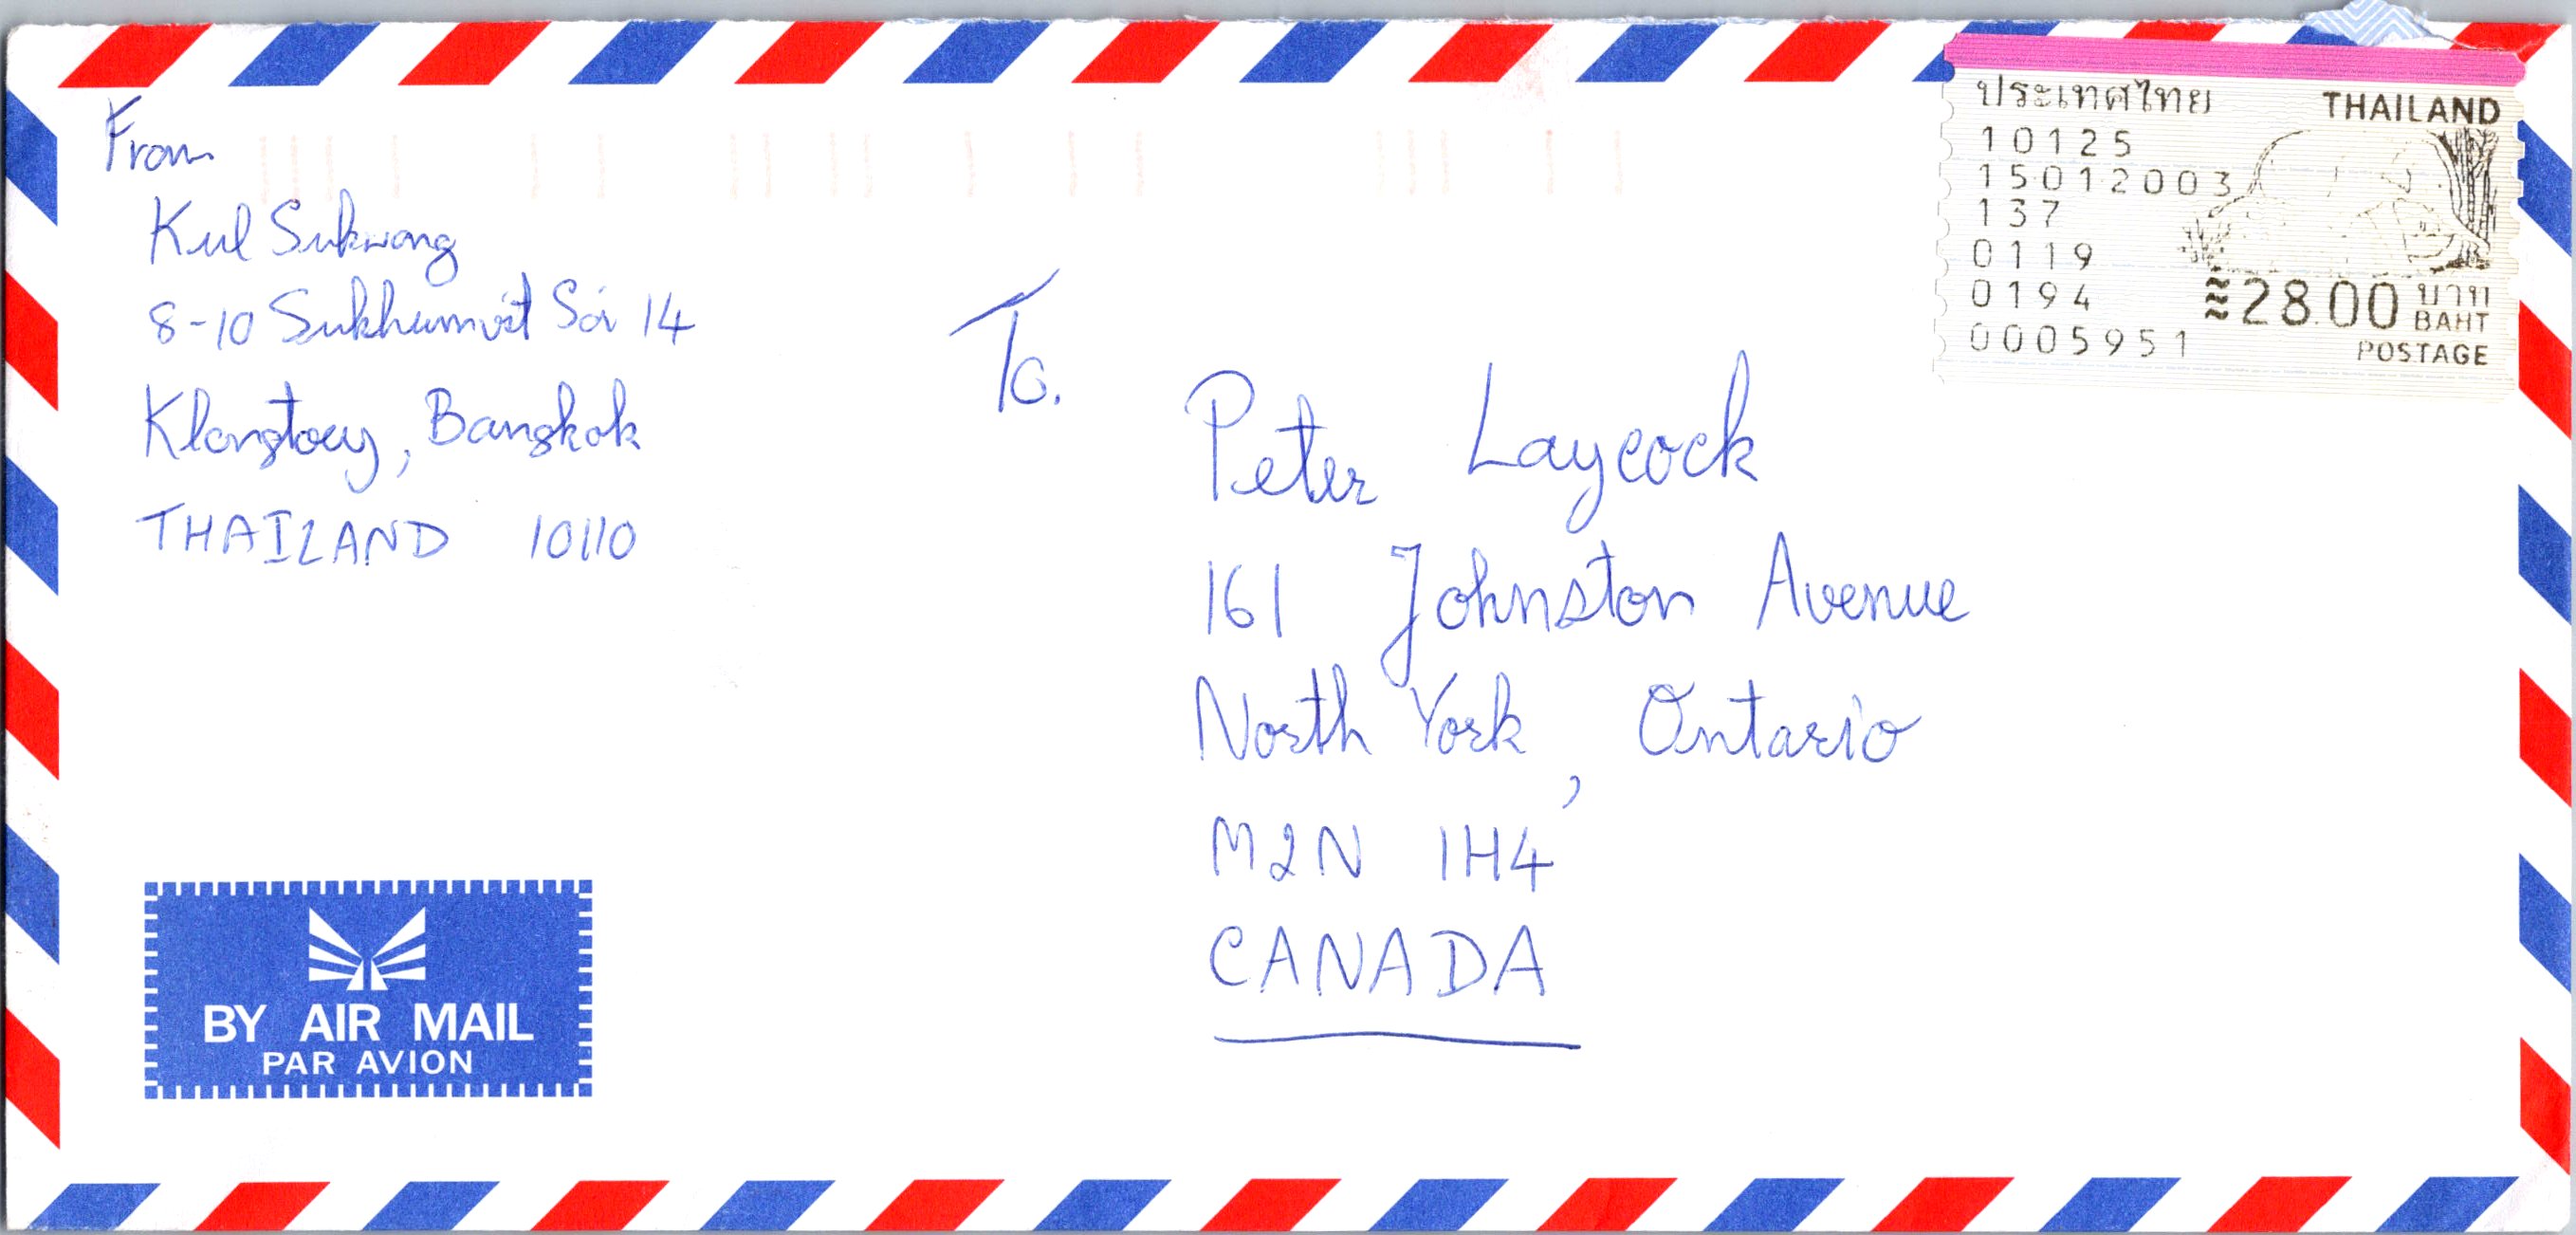 From
Kul Sukwong
8-10 Sukhumvit Soi 14
Klongtoey, Bangkok
THAILAND 10110
ประเทศไทย THAILAND
10125
15012003
137
0119
0194
0005951
≈28.00 บาท
BAHT
POSTAGE
To.
Peter Laycock
161 Johnston Avenue
North York, Ontario
M2N 1H4
CANADA
BY AIR MAIL
PAR AVION